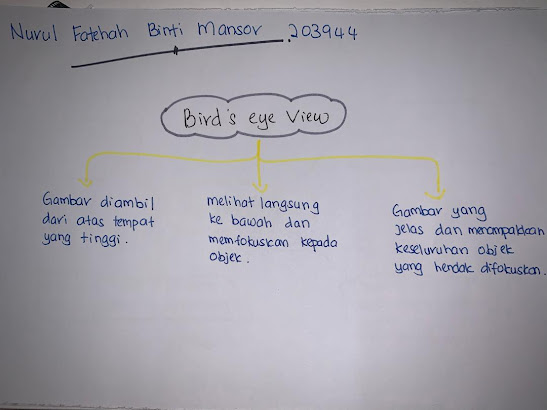 Nurul Fatehah Binti Mansor 203944
Bird's eye View
Gambar diambil
dari atas tempat
yang tinggi.
melihat langsung
ke bawah dan
memfokuskan kepada
objek.
Gambar yang
jelas dan menampakkan
keseluruhan objek
yang hendak difokuskan.